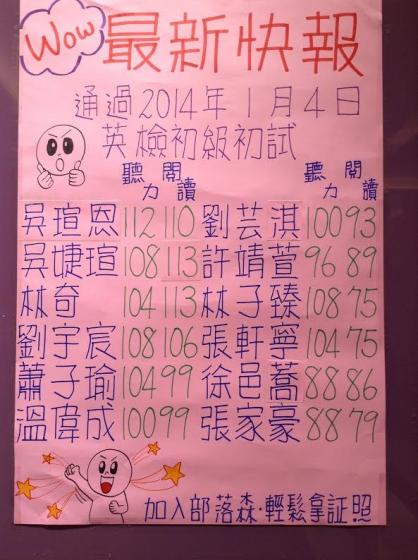 Wow 最新快報
通過2014年1月4日
英檢初級初試
聽力 閱讀 聽力 閱讀
吳瑄恩 112 110 劉芸淇 100 93
吳婕瑄 108 113 許靖萱 96 89
林奇 104 113 林子臻 108 75
劉宇宸 108 106 張軒寧 104 75
蕭子瑜 104 99 徐邑蕎 88 86
溫偉成 100 99 張家豪 88 79
加入部落森·輕鬆拿証照